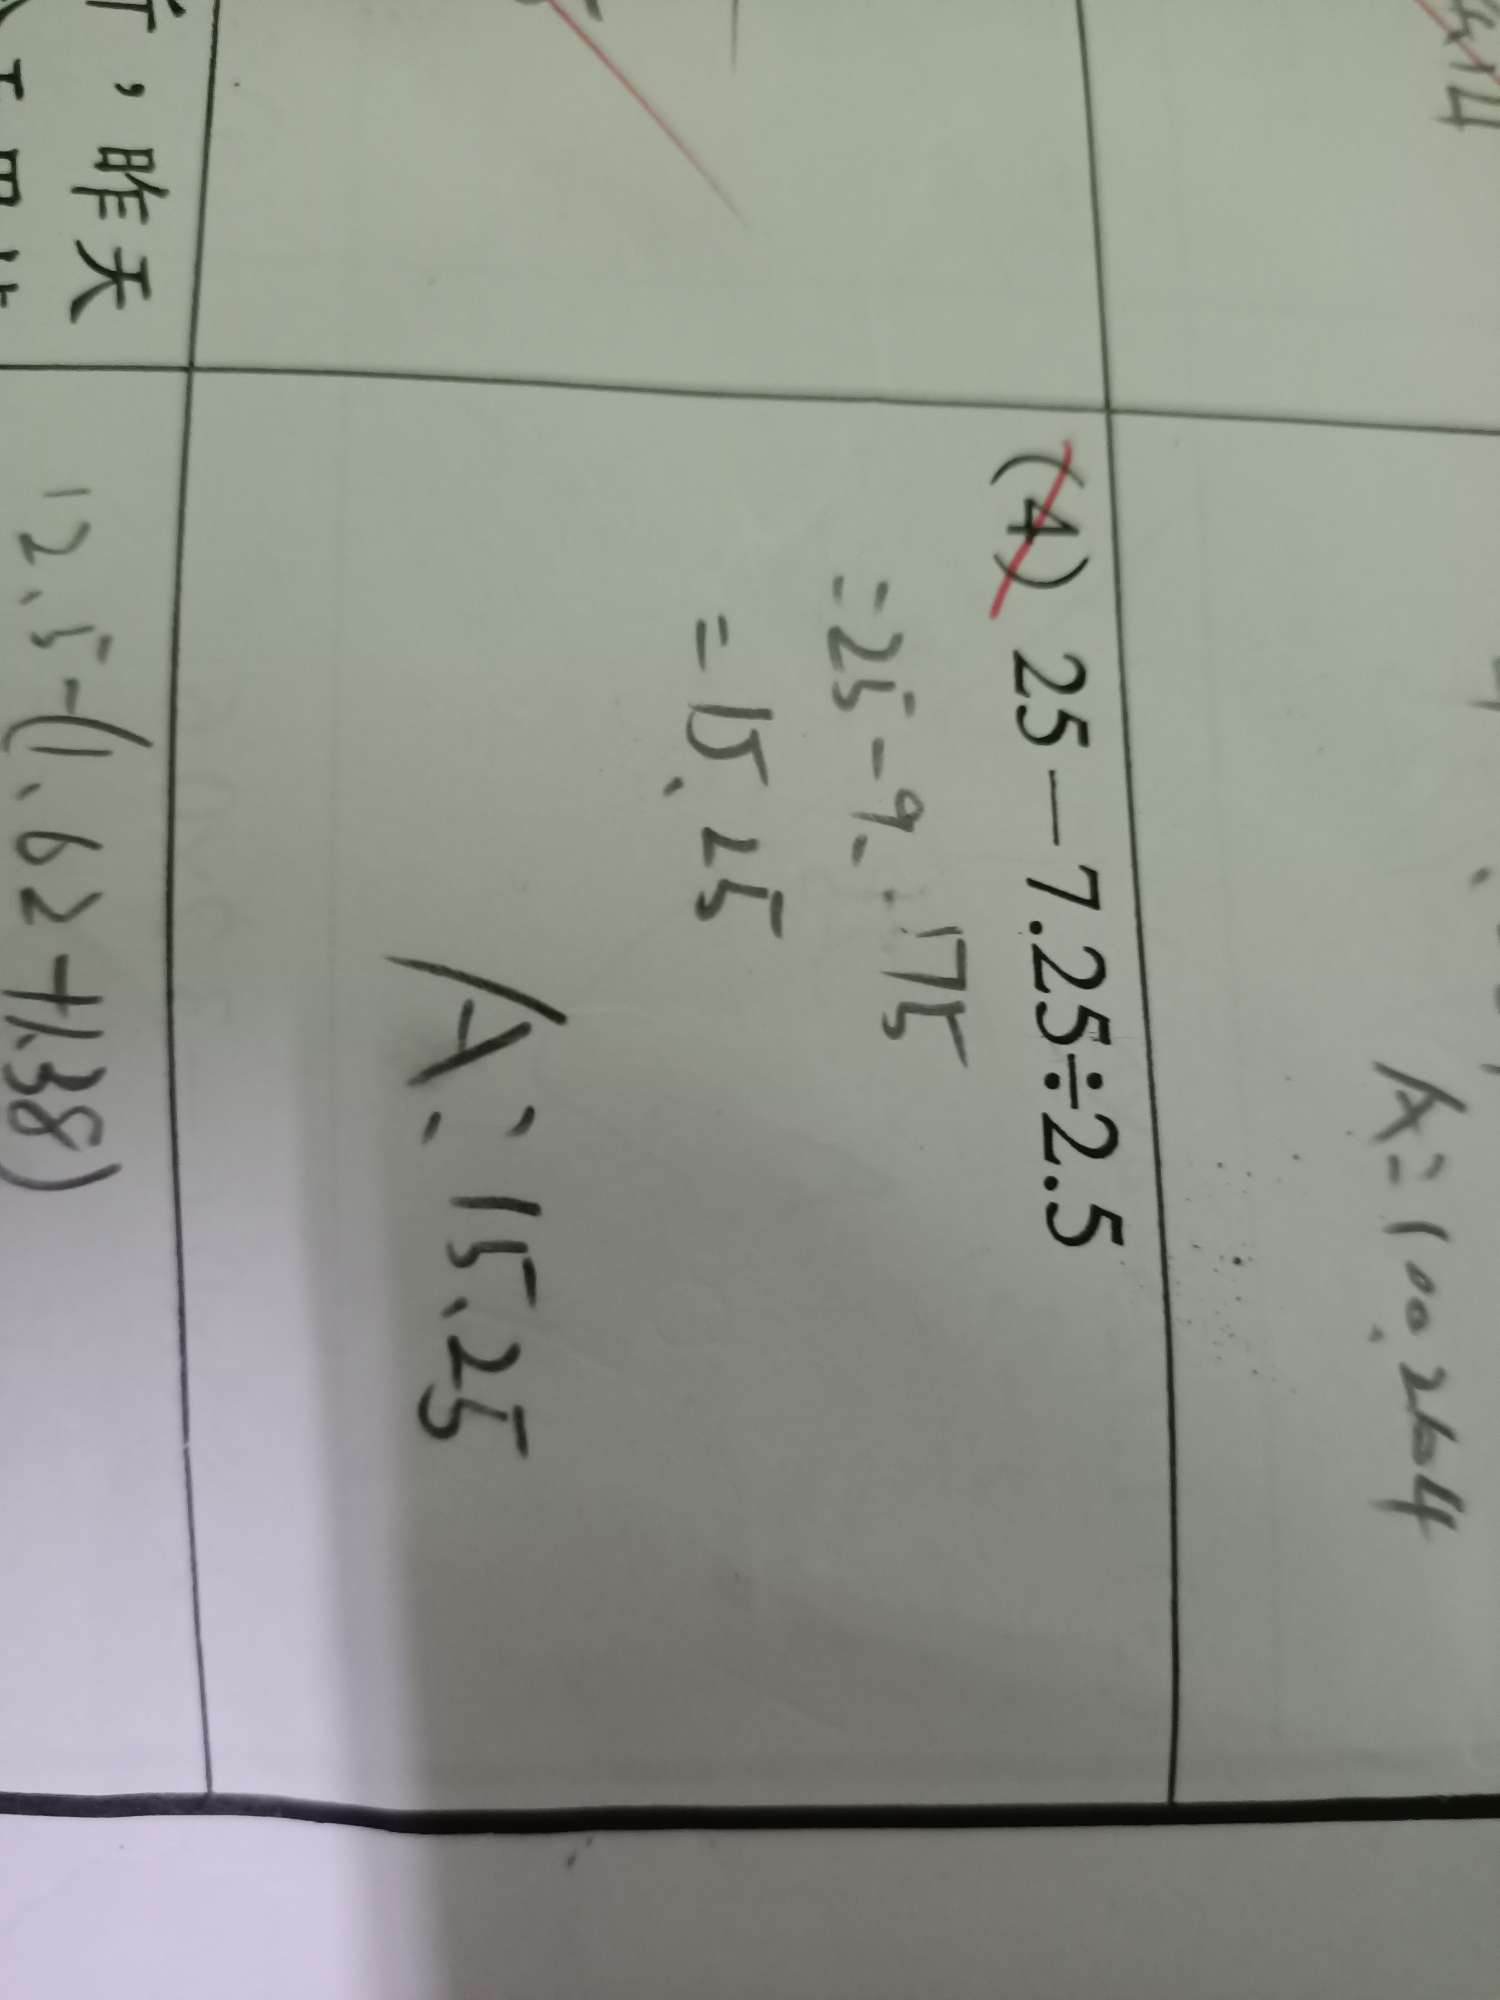 A=100.264
(4) 25－7.25÷2.5
=25-9.75
=15.25
A:15.25
，昨天
12.5-(1.62+1.38)